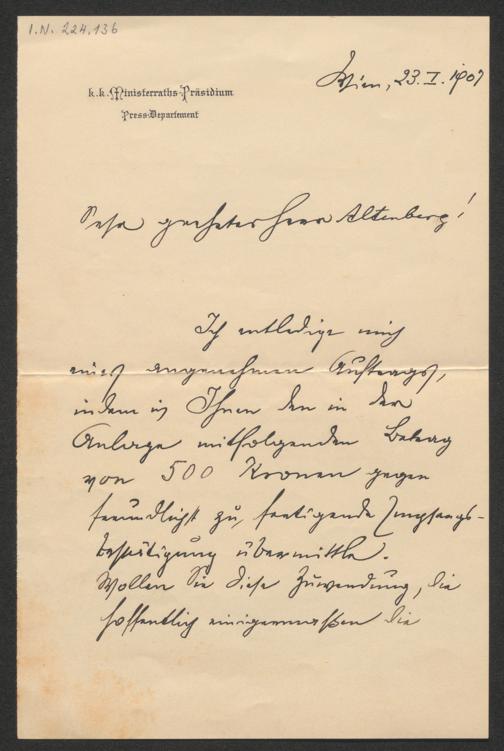 I.N. 224.136
k.k. Ministerraths-Präsidium
Press-Departement
Wien, 23. I. 1907
Sehr geehrter Herr Altenberg!
Ich entledige mich
eines angenehmen Auftrags,
indem ich Ihnen den in der
Anlage mitfolgenden Betrag
von 500 Kronen gegen
freundlichst zu fertigende Empfangs-
bestätigung übermittle.
Wollen Sie diese Zuwendung, die
hoffentlich einigermaßen die